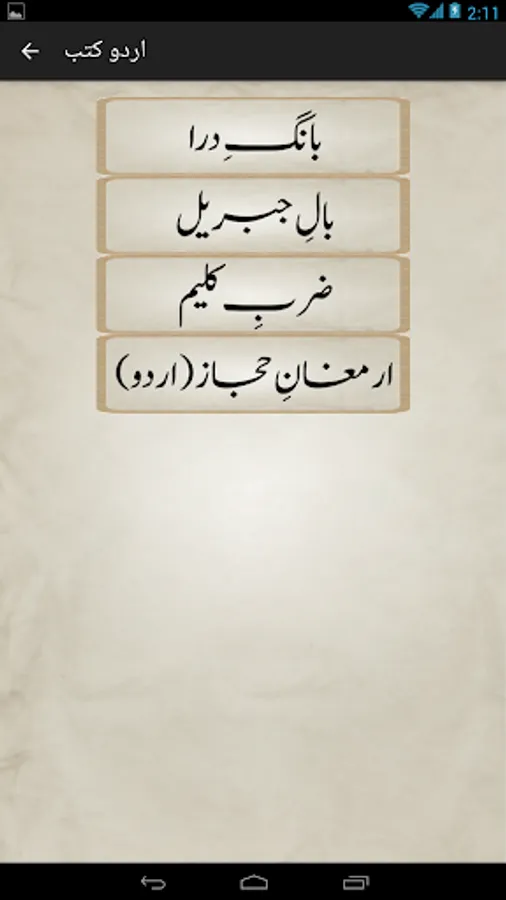 2:11
اردو کتب
بانگِ درا
بالِ جبریل
ضربِ کلیم
ارمغانِ حجاز (اردو)